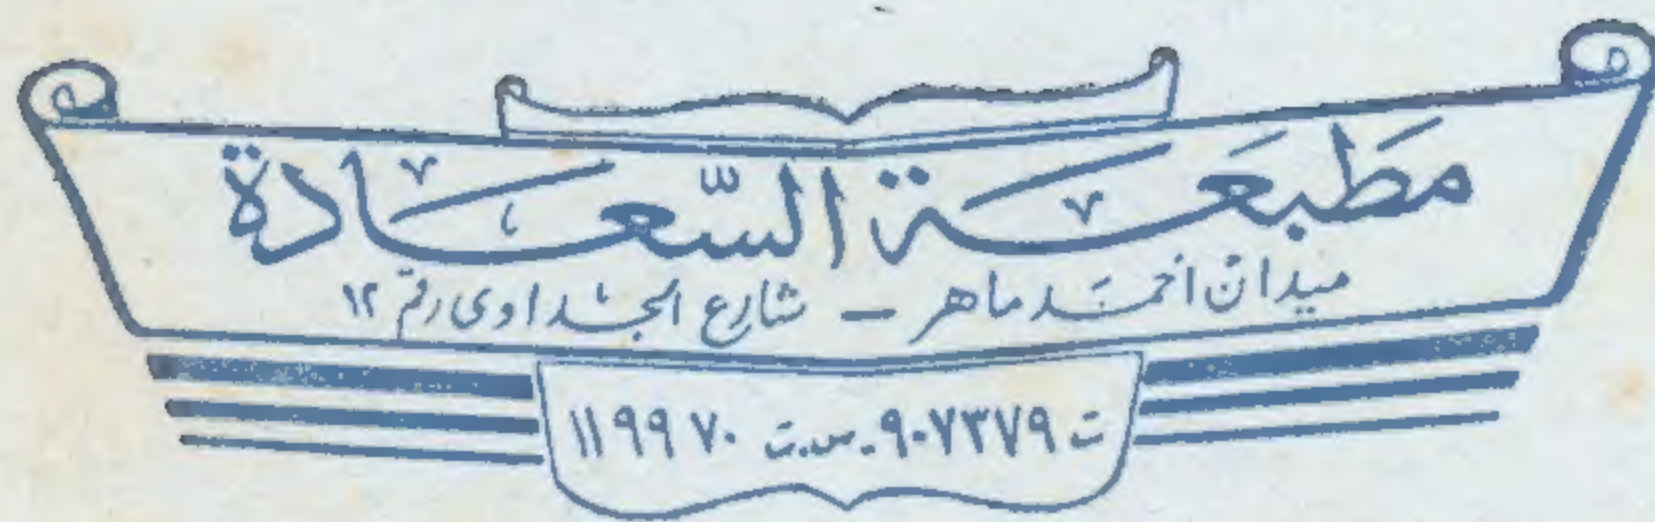 مطبعة السعادة
ميدان أحمد ماهر – شارع الجداوى رقم ١٢
ت ٩٠٧٣٧٩ - س.ت ١١٩٩٧٠